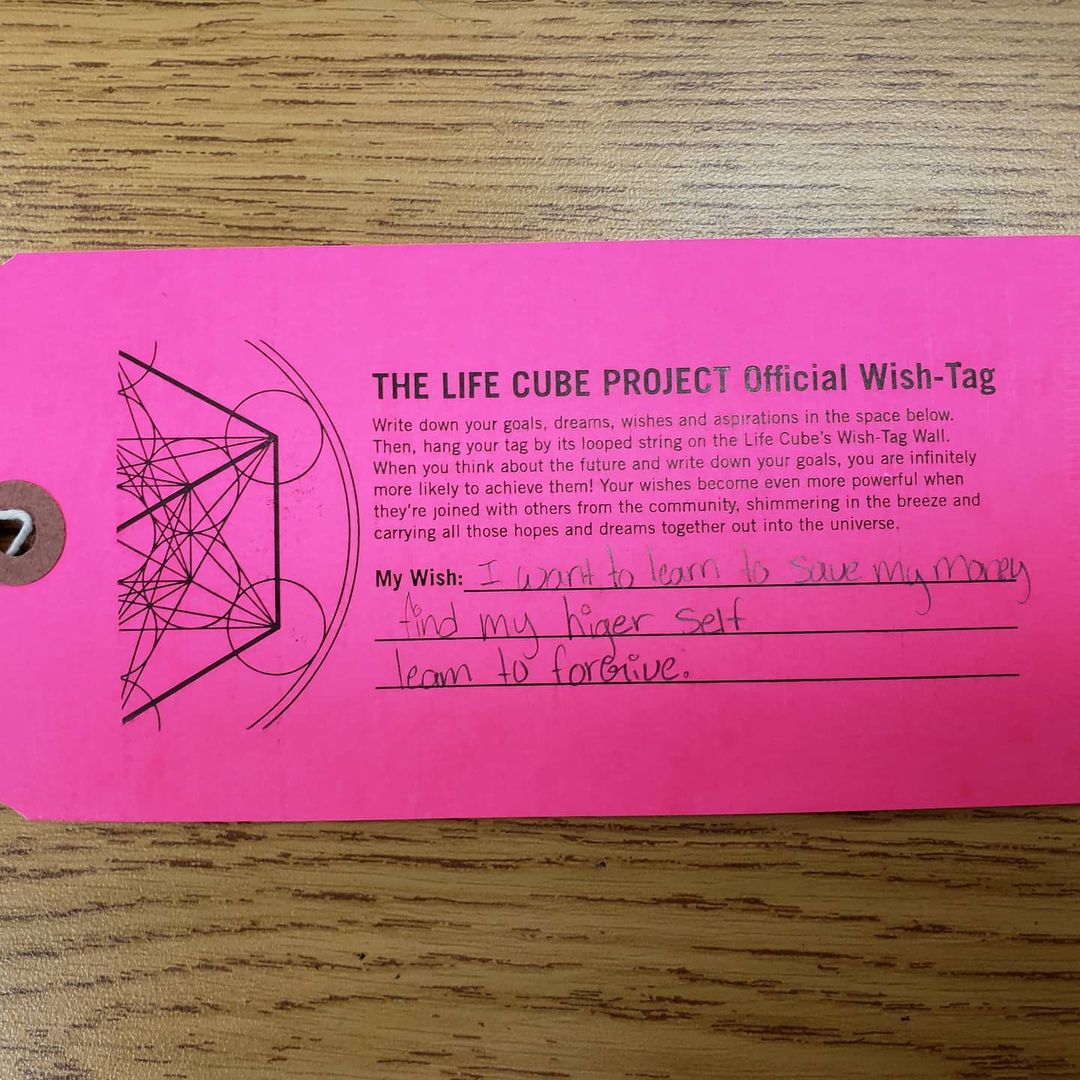 THE LIFE CUBE PROJECT Official Wish-Tag
Write down your goals, dreams, wishes and aspirations in the space below.
Then, hang your tag by its looped string on the Life Cube's Wish-Tag Wall.
When you think about the future and write down your goals, you are infinitely
more likely to achieve them! Your wishes become even more powerful when
they're joined with others from the community, shimmering in the breeze and
carrying all those hopes and dreams together out into the universe.
My Wish: I want to learn to save my money
find my higer self
learn to forGive.